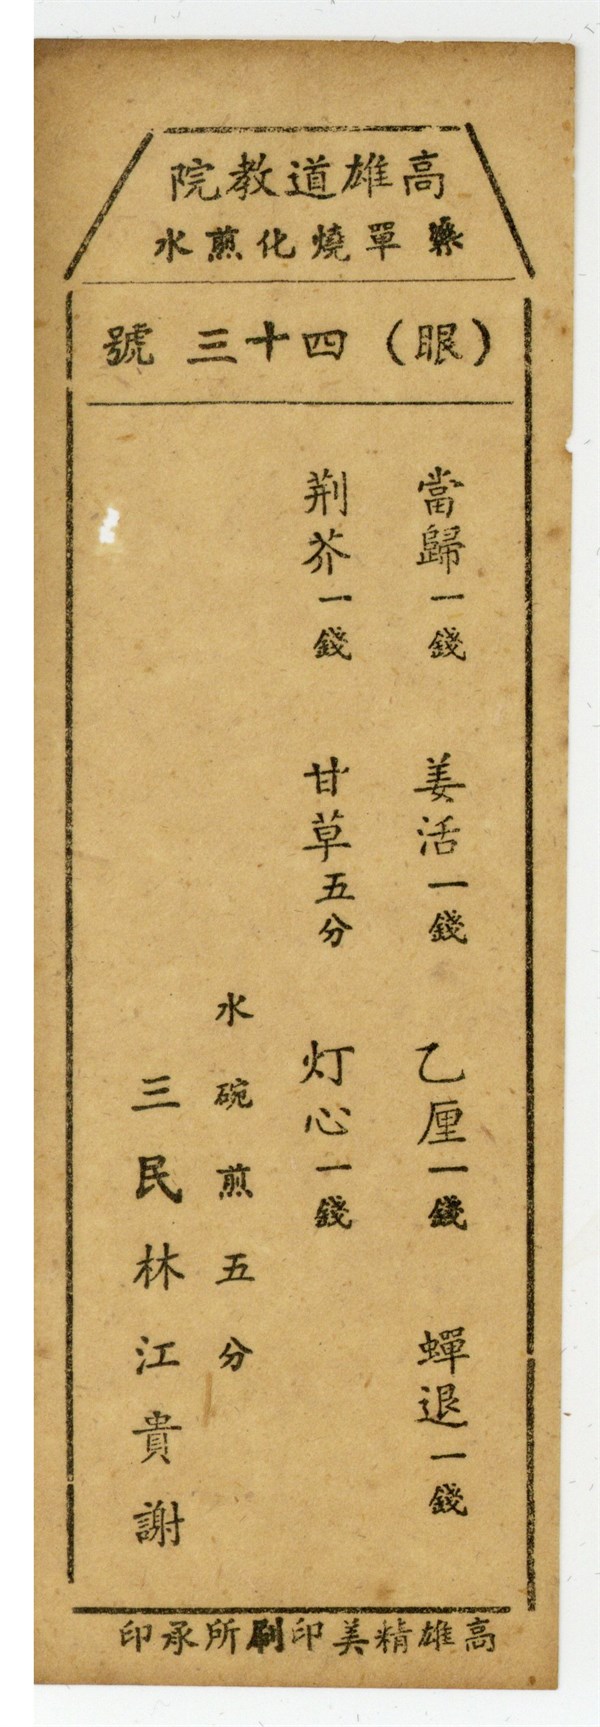 高雄道教院
藥單燒化煎水
（眼）四十三號
當歸一錢 姜活一錢 乙厘一錢 蟬退一錢
荆芥一錢 甘草五分 灯心一錢
水碗煎五分
三民林江貴謝
高雄精美印刷所承印